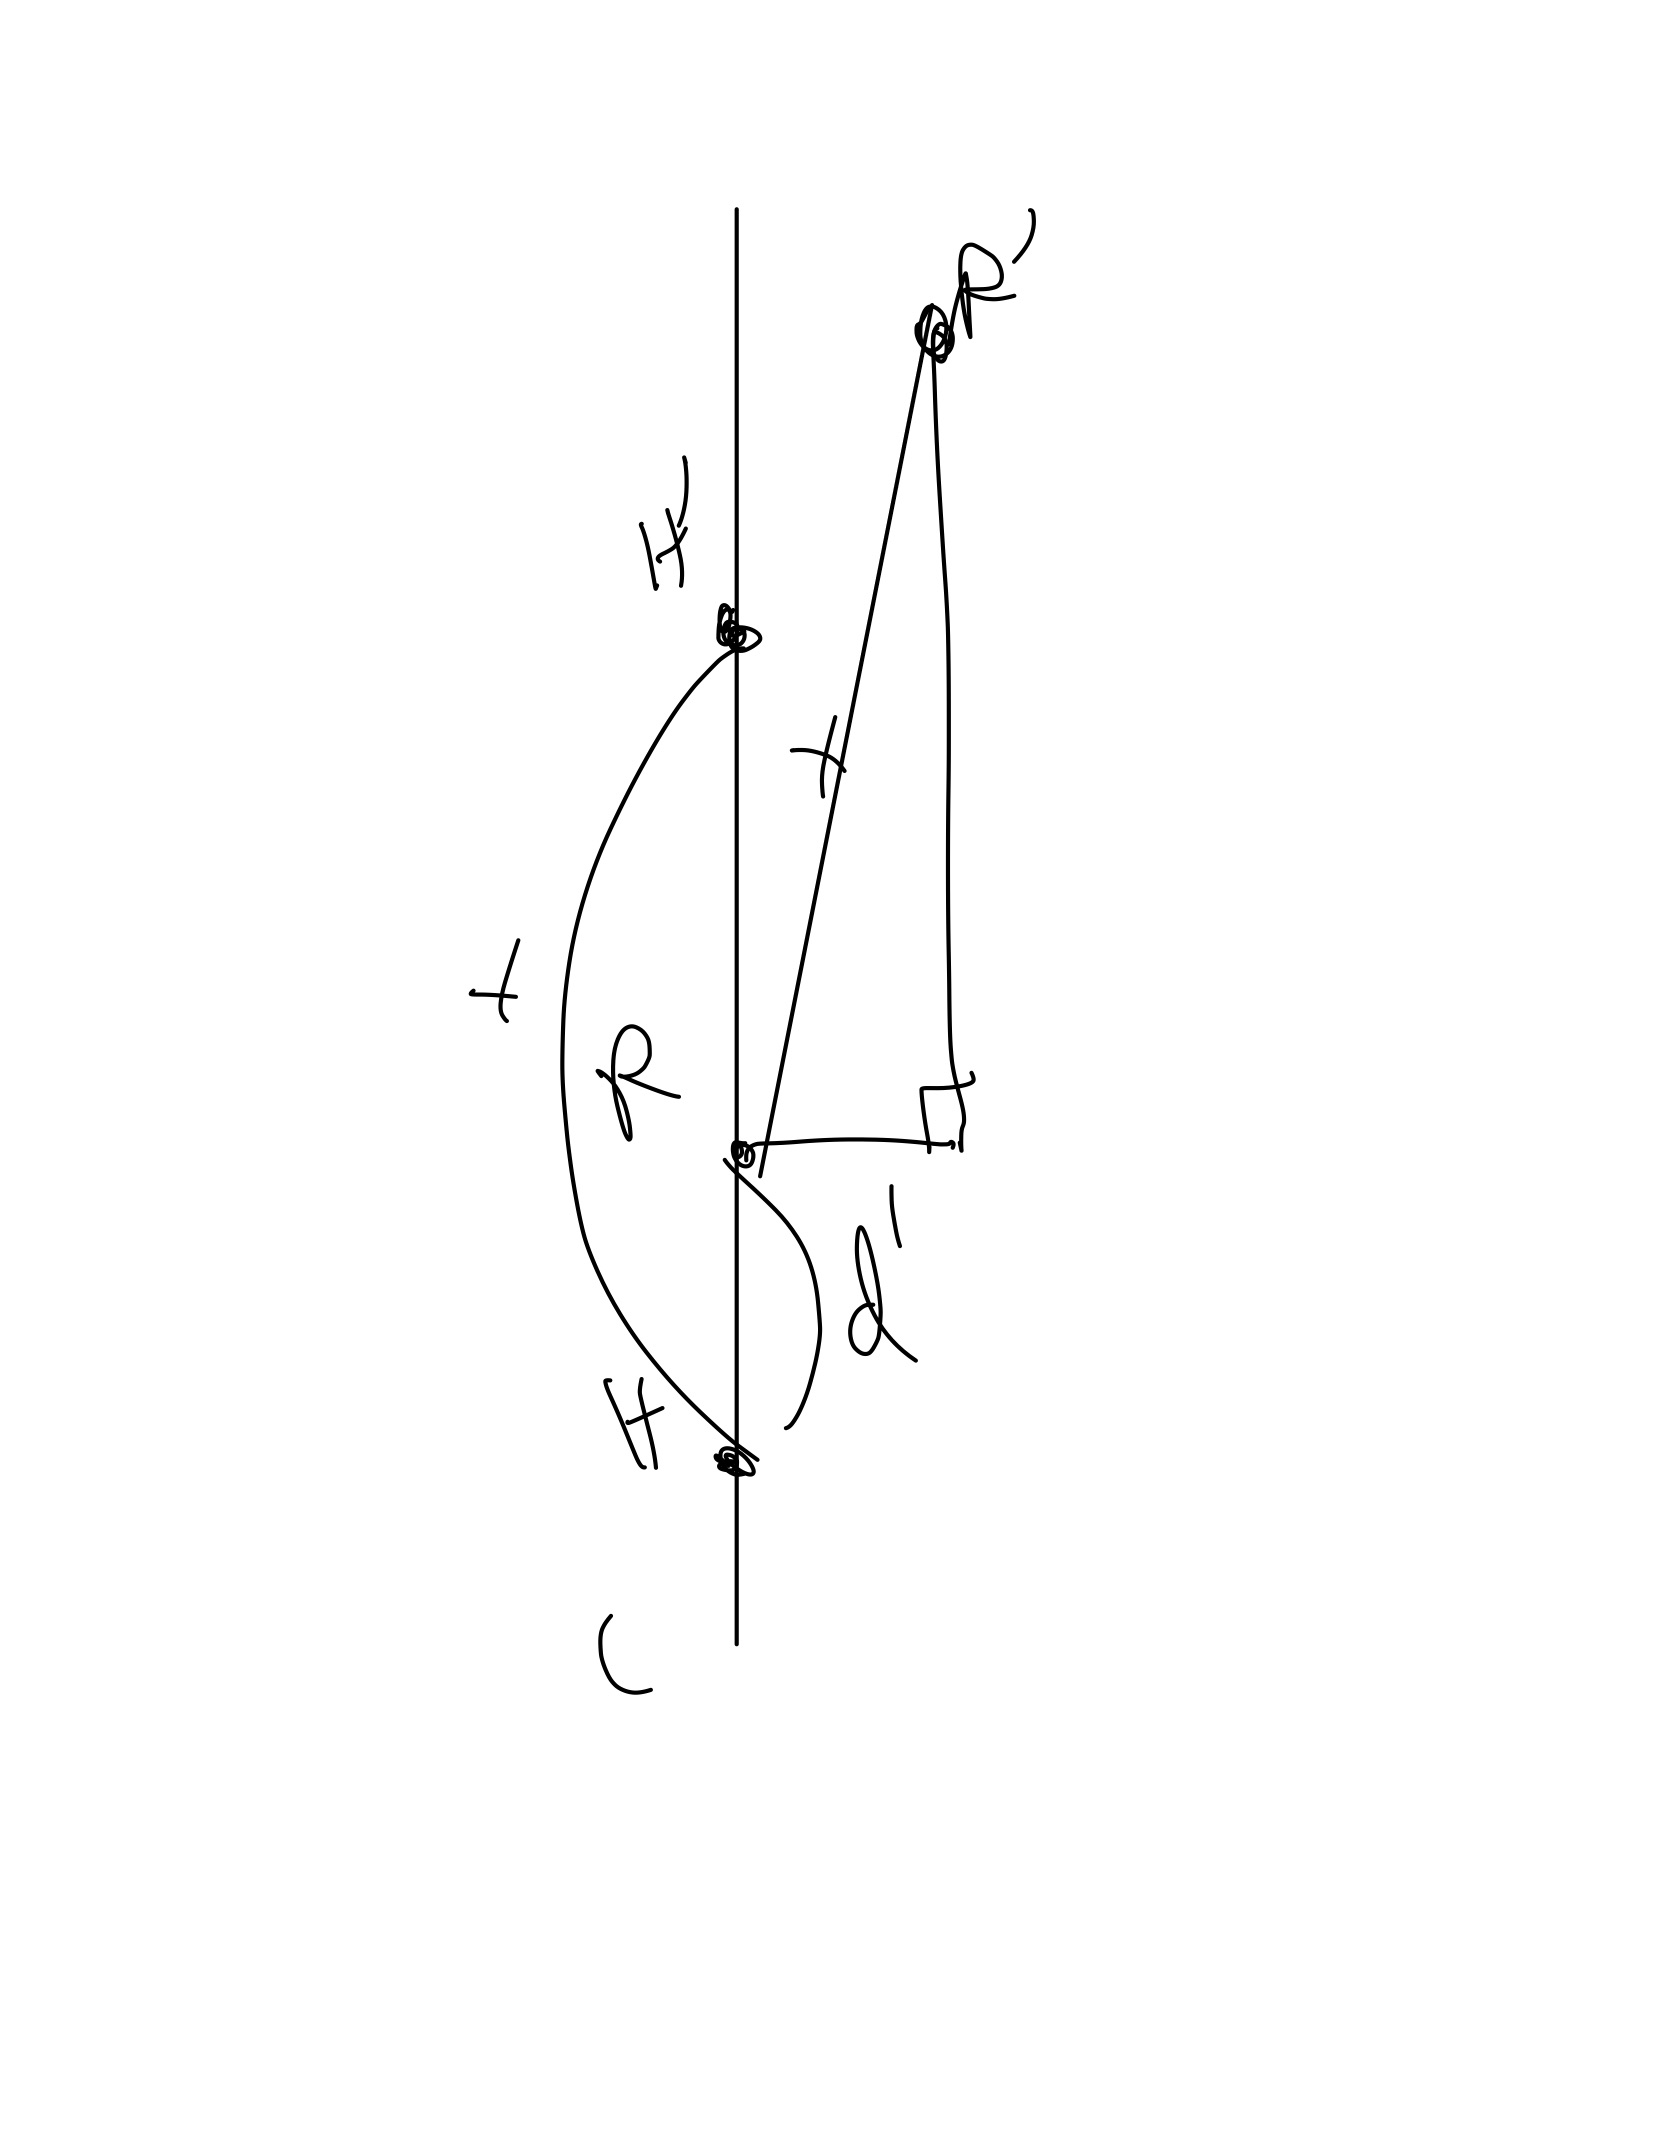 R'
H'
t
t
R
d'
H
C